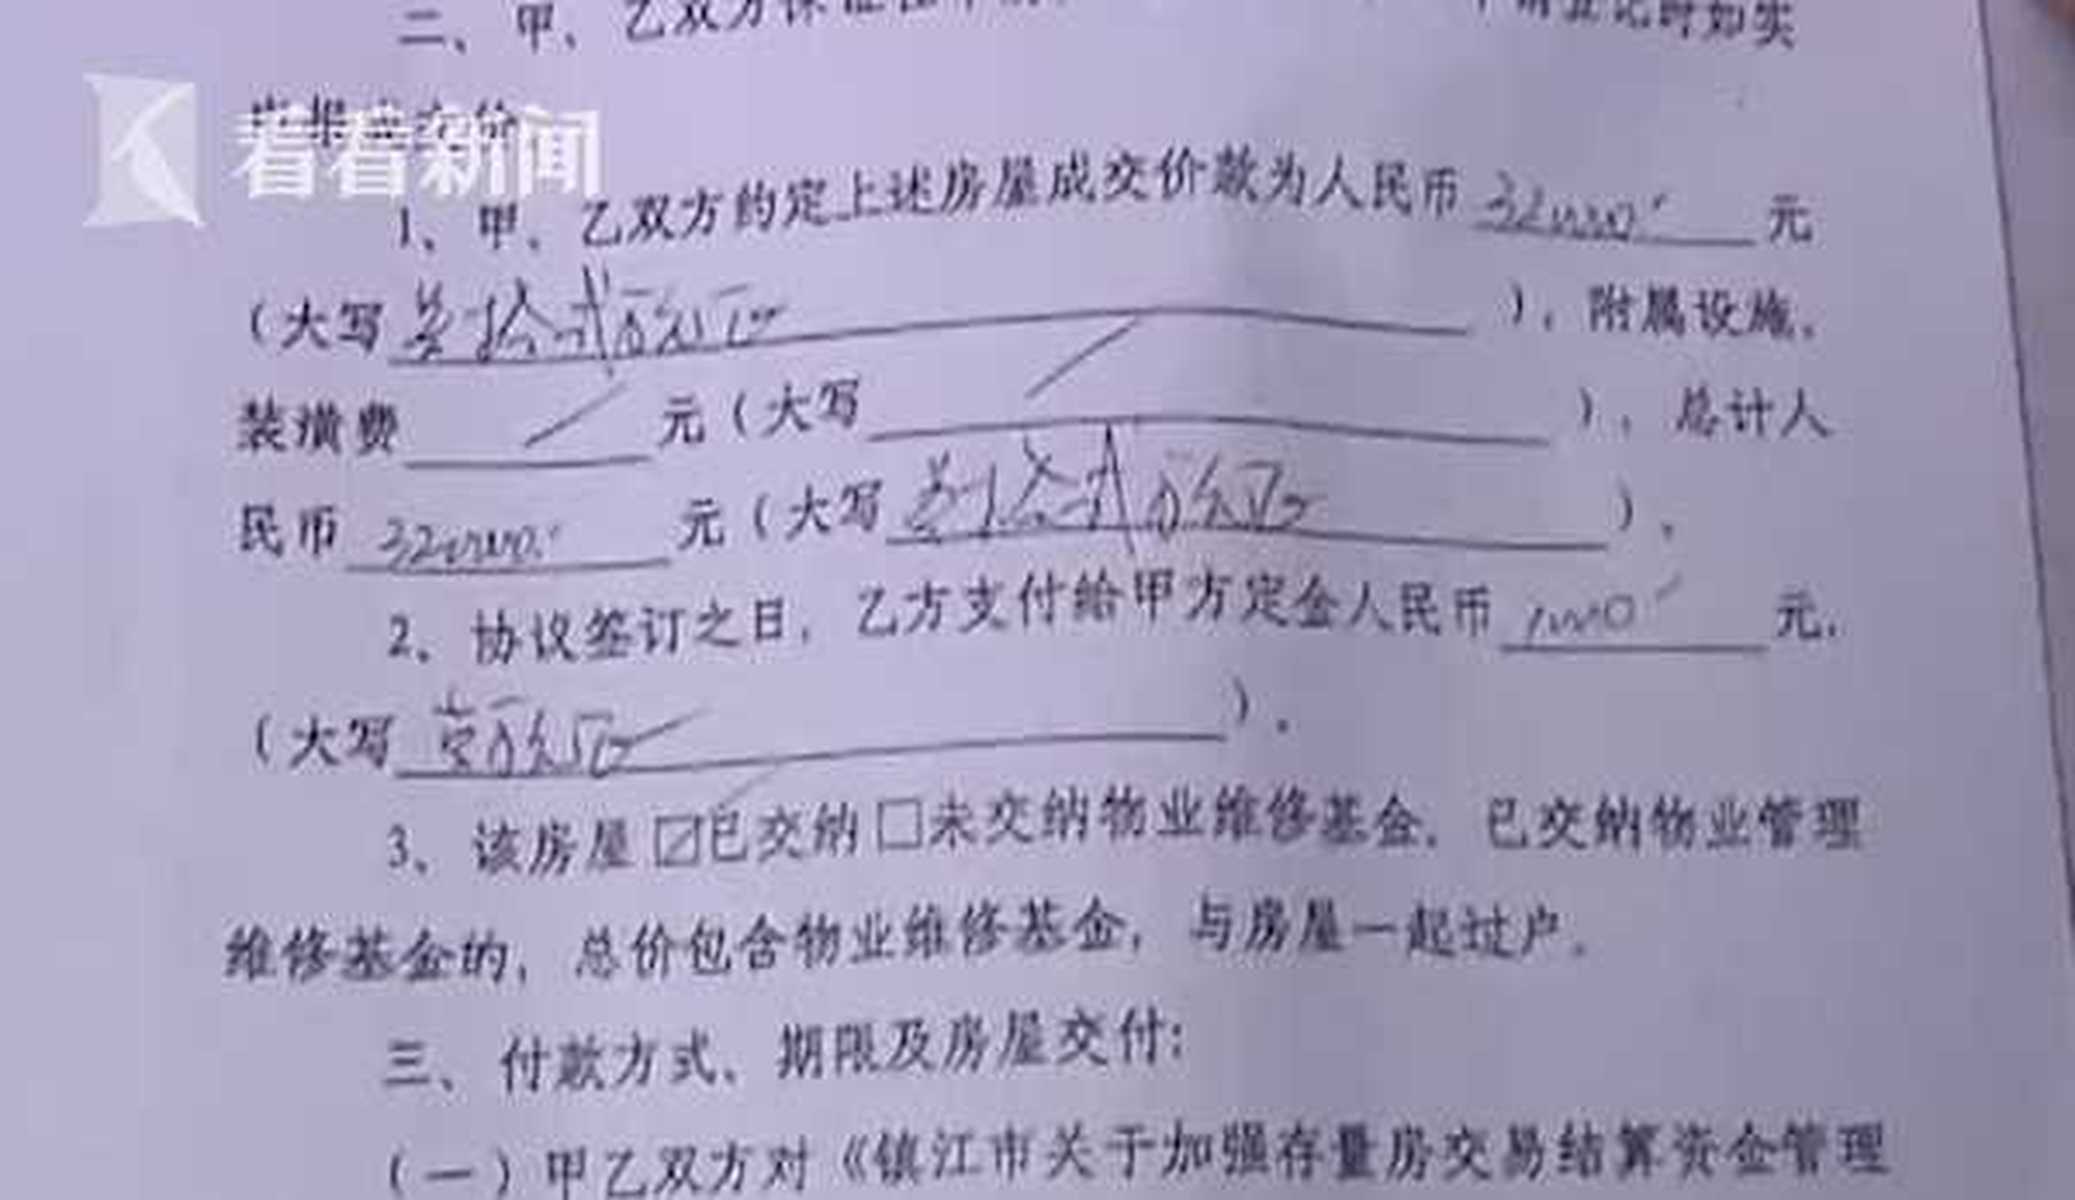 二、甲、乙双方保证在
登记时如实
看看新闻
1、甲、乙双方约定上述房屋成交价款为人民币 320000 元
(大写 叁拾贰万元正 ),附属设施、
装潢费 / 元(大写 / ),总计人
民币 320000 元(大写 叁拾贰万元正 )。
2、协议签订之日,乙方支付给甲方定金人民币 10000 元,
(大写 壹万元正 )。
3、该房屋☑已交纳□未交纳物业维修基金,已交纳物业管理
维修基金的,总价包含物业维修基金,与房屋一起过户。
三、付款方式、期限及房屋交付:
(一)甲乙双方对《镇江市关于加强存量房交易结算资金管理